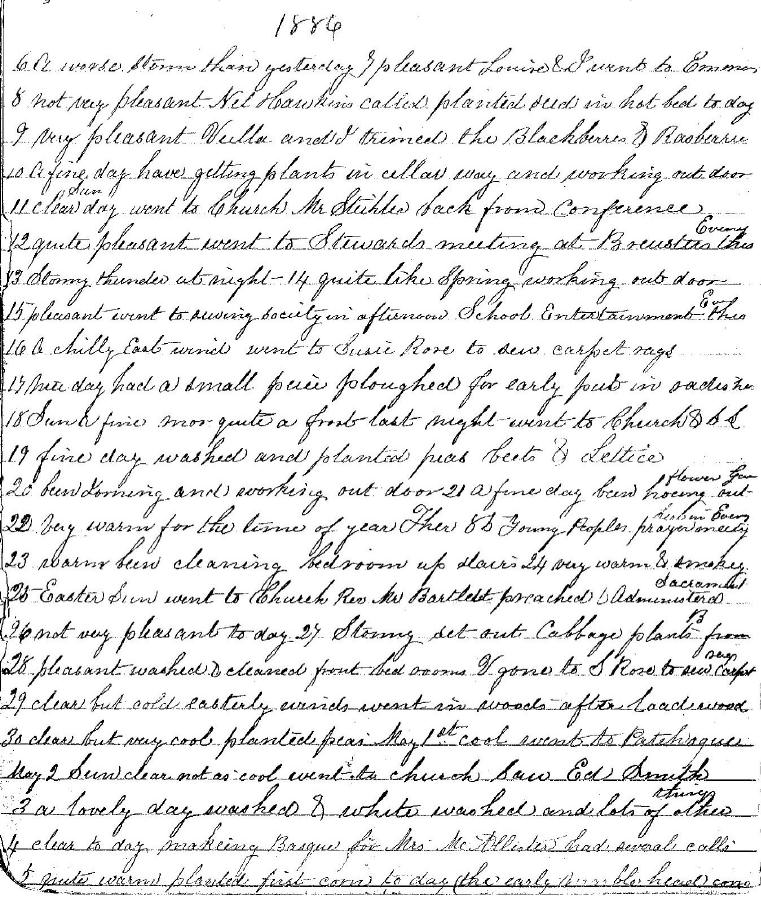 1886
6 A worse storm than yesterday 7 pleasant Louise & I went to Emmas
8 not very pleasant Net Hawkins called planted seed in hot bed to day
9 very pleasant Vella and I trimed the Blackberres & Rasberrie
10 A fine day have getting plants in cellar way and working out door
11 clear Sun day went to Church Mr Stehles back from Conference
12 quite pleasant went to Stewards meeting at Brewsters this Eveng
13 Stomy thunder at night - 14 quite like Spring working out door
15 pleasant went to sewing society in afternoon School Entertainment this Ev
16 A chilly East wind went to Susie Rose to sew carpet rags
17 nice day had a small peice ploughed for early put in radishes
18 Sun A fine mor quite a frost last night went to Church & S S
19 fine day washed and planted peas beets & Lettice
20 been Ironing and working out door 21 A fine day been hoeing out flower Gar
22 Very warm for the time of year Ther 80 Young Peoples prayer meeting Eveng
23 warm been cleaning bedroom up stairs 24 very warm & smokey
25 Easter Sun went to Church Rev Mr Bartlett preached & Administerd Sacrament
26 not very pleasant to day 27 Stomy set out Cabbage plants from B
28 pleasant washed & cleaned front bed rooms V gone to S Rose to sew Carpet rags
29 clear but cold easterly winds went in woods after load wood
30 clear but very cool planted peas May 1st cool went to Patchogue
May 2 Sun clear not as cool went to church Saw Ed Smith
3 a lovely day washed & white washed and lots of other things
4 clear to day makeing Basque for Mrs Mc Allister had sevral calls
5 quite warm planted first corn to day (the early head) corn